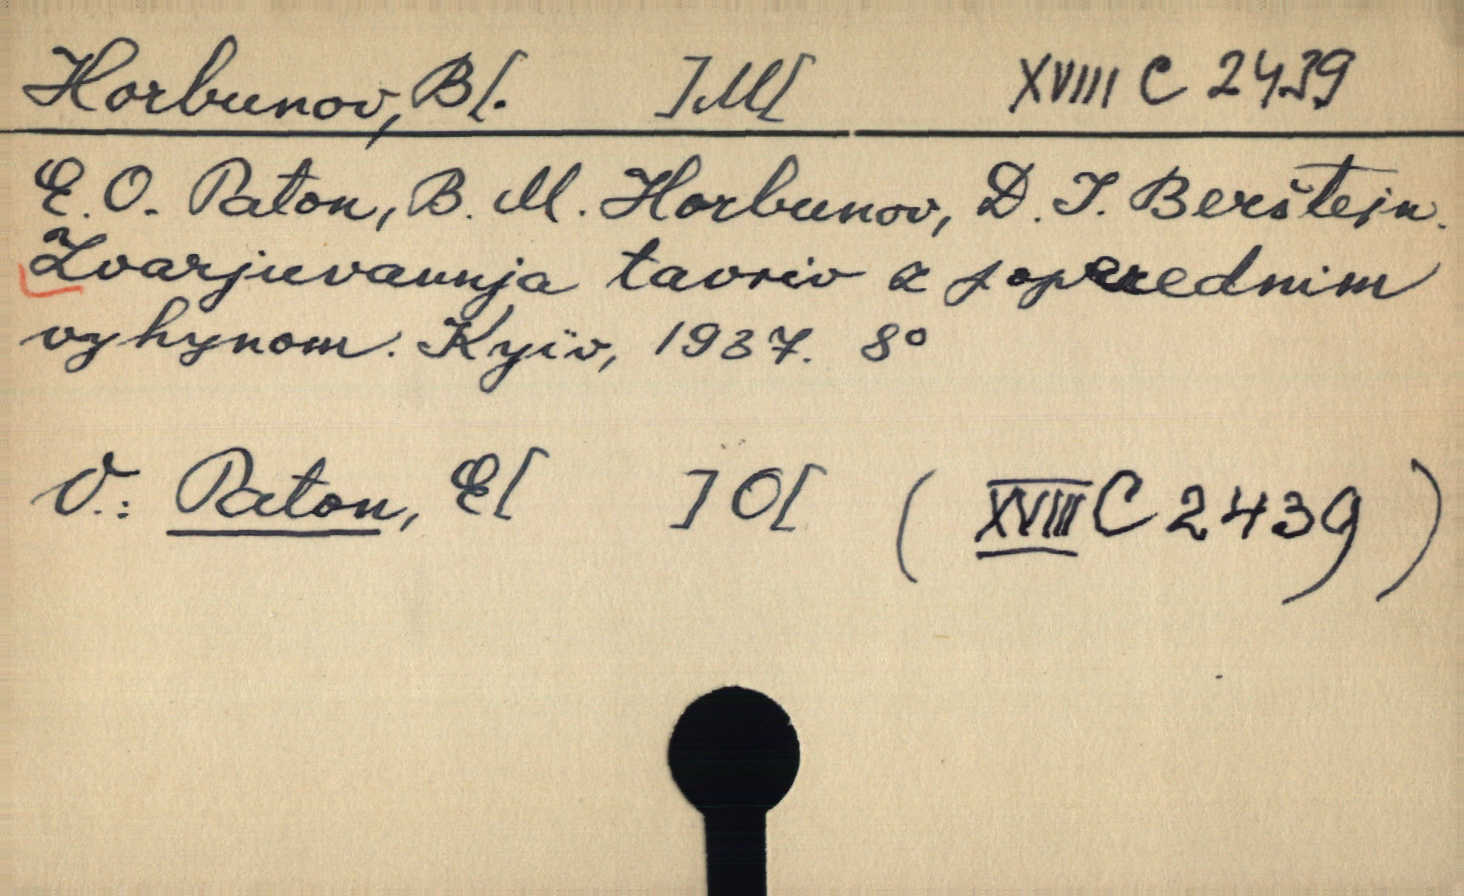 Horbunov, B[. ]M[ XVIII C 2439
E. O. Paton, B. M. Horbunov, D. I. Berštejn.
Zvarjuvannja tavriv z poperednim
vyhynom. Kyïv, 1937. 8°
V.: Paton, E[ ]O[ (XVIII C 2439)